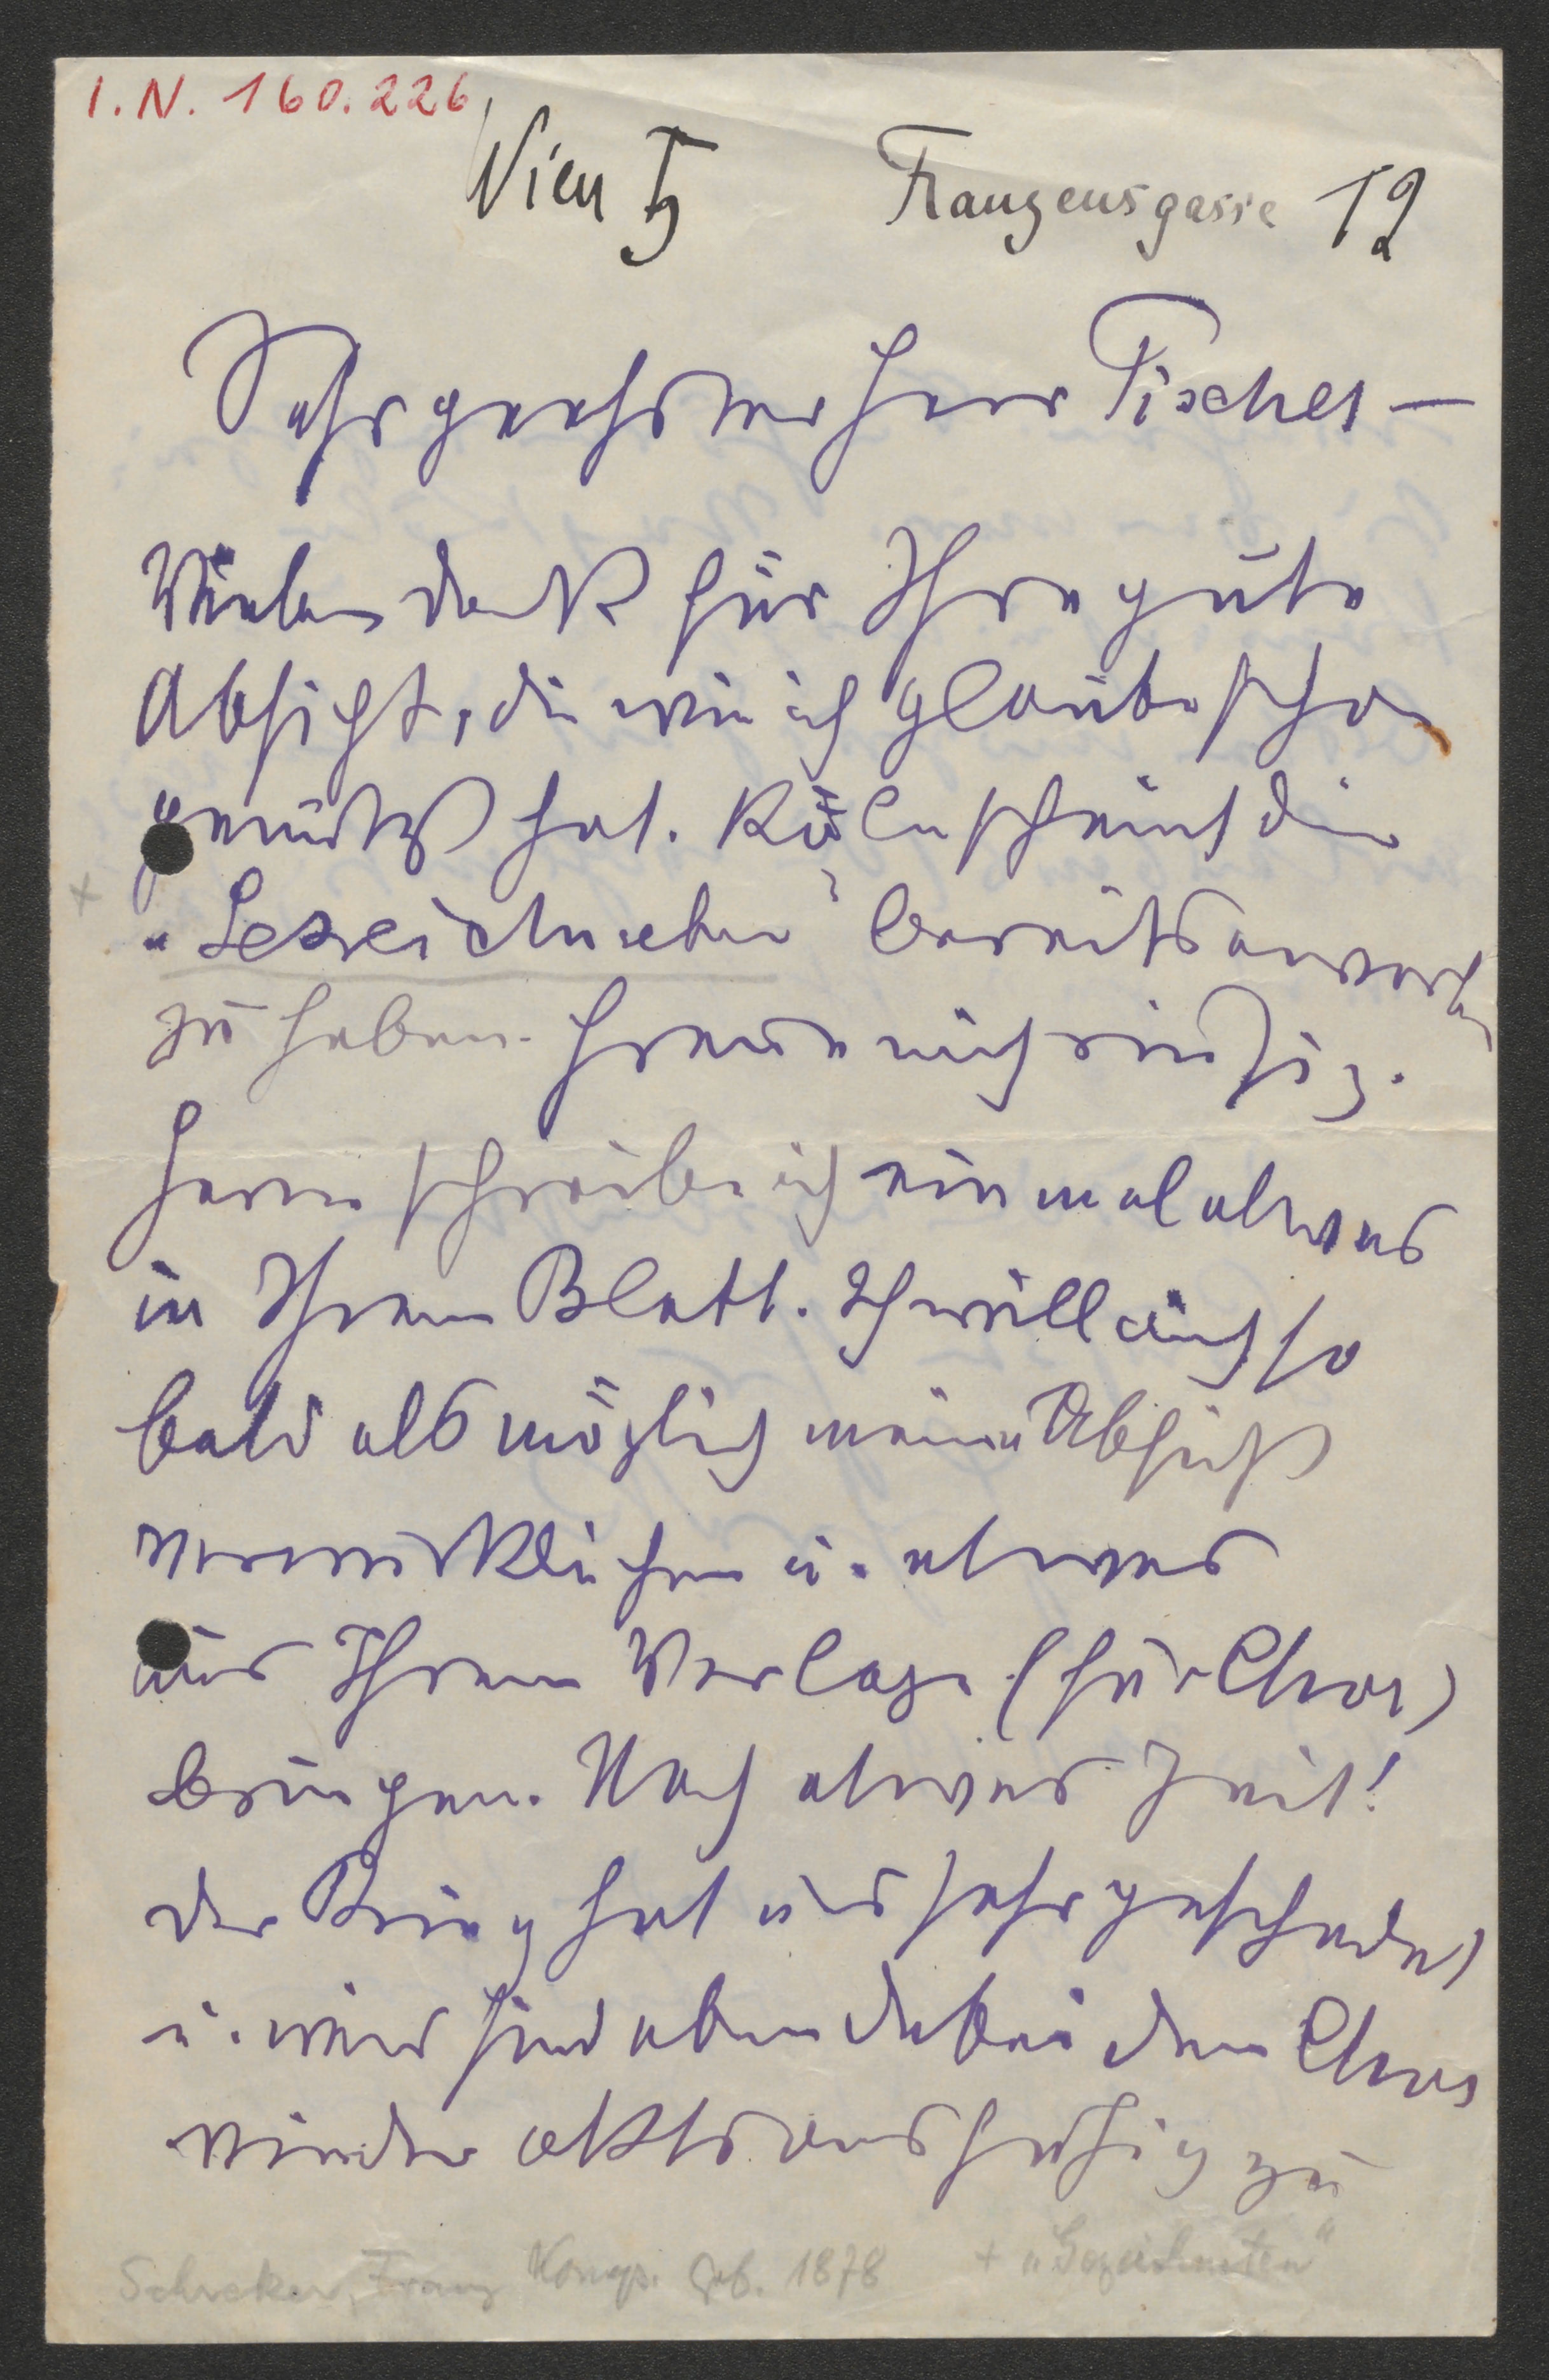 I.N. 160.226
Wien 5 Franzensgasse 12
Sehr geehrter Herr Tischer —
Vielen Dank für Ihre gute
Absicht, die wie ich glaube schon
genützt hat. Köln scheint die
bereits erworben
zu haben. Freue mich riesig.
Gerne schreibe ich einmal etwas
in Ihrem Blatt. Ich will auch so
bald als möglich meine Absicht
verwirklichen u. etwas
aus Ihrem Verlage (für Chor)
bringen. Noch etwas Zeit!
Der Krieg hat uns sehr geschadet
u. wir sind eben dabei den Chor
wieder aktionsfähig zu
Schreker, Franz Komp. geb. 1878 + „Gezeichneten"